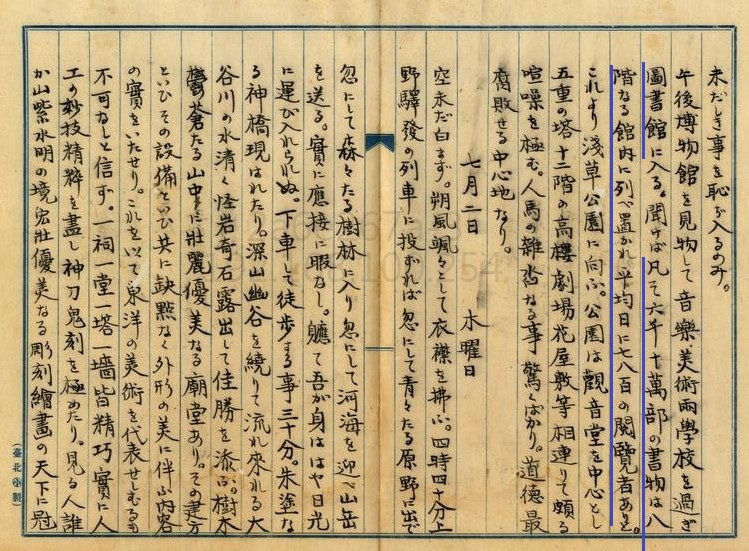 未だしき事を恥ぢ入るのみ。
午後博物館を見物して音樂、美術兩學校を過ぎ
圖書館に入る。聞けば凡そ六年十萬部の書物は八
階なる館内に列べ置かれ平均日に七八百の閲覽者ありと。
これより淺草公園に向ふ。公園は觀音堂を中心とし
五重の塔十二階の高樓劇場花屋敷等相連りて頗る
喧噪を極む。人馬の雜沓なる事驚くばかり。道德最
腐敗せる中心地なり。
七月二日 木曜日
空未だ白まず。朔風颯々として衣襟を拂ふ。四時四十分上
野驛發の列車に投ずれば忽にして青々たる原野に出で
忽にして森々たる樹林に入り忽にして河海を迎へ山岳
を送る。實に應接に暇なし。軈て吾が身ははや日光
に運び入れられぬ。下車して徒歩する事三十分。朱塗な
る神橋現はれたり。深山幽谷を繞りて流れ來れる大
谷川の水清く怪岩奇石露出して佳勝を添ふ。樹木
鬱蒼たる山中に壯麗優美なる廟堂あり。その建方
といひその設備といひ共に缺點なく外形の美に伴ふ内容
の實をいたせり。これを以て東洋の美術を代表せしむるも
不可なしと信ず。一祠一堂一塔一墻皆精巧實に人
工の妙技精粹を盡し神刀鬼刻を極めたり。見る人誰
か山紫水明の境宏壯優美なる彫刻繪畫の天下に冠
(臺北小製)